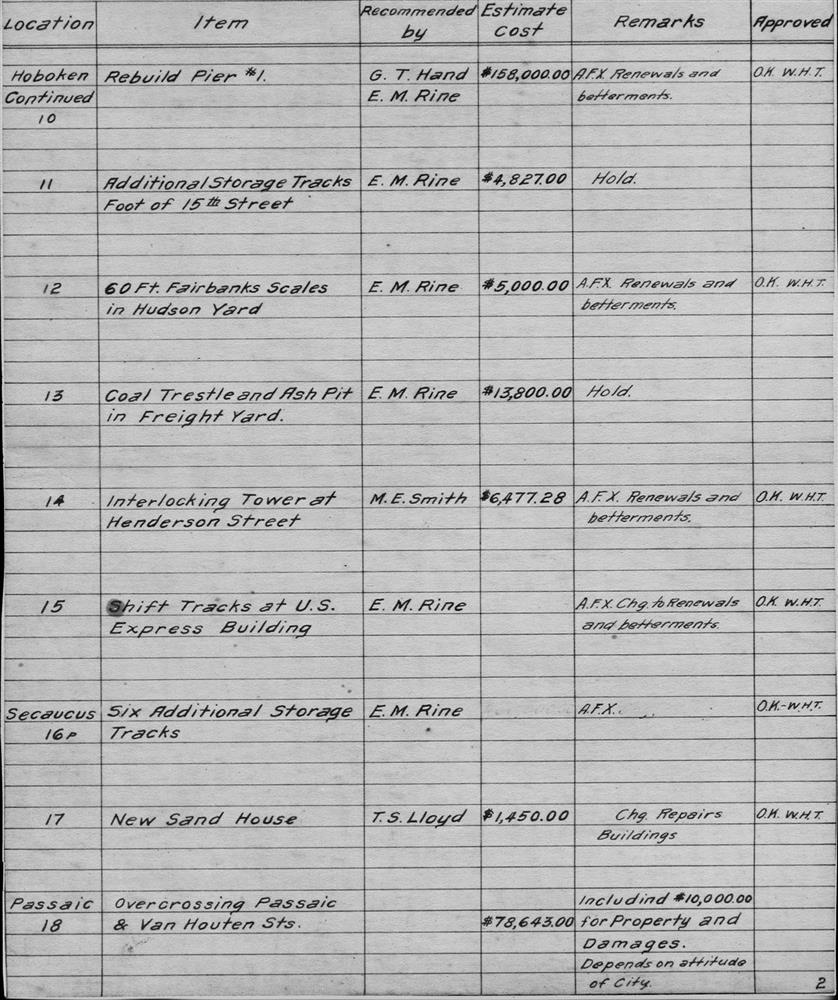 Location Item Recommended by Estimate Cost Remarks Approved
Hoboken Rebuild Pier #1. G. T. Hand $158,000.00 A.F.X. Renewals and O.K. W.H.T.
Continued E. M. Rine betterments.
10
11 Additional Storage Tracks E. M. Rine $4,827.00 Hold.
Foot of 15th Street
12 60 Ft. Fairbanks Scales E. M. Rine $5,000.00 A.F.X. Renewals and O.K. W.H.T.
in Hudson Yard betterments.
13 Coal Trestle and Ash Pit E. M. Rine $13,800.00 Hold.
in Freight Yard.
14 Interlocking Tower at M. E. Smith $6,477.28 A.F.X. Renewals and O.K. W.H.T.
Henderson Street betterments.
15 Shift Tracks at U.S. E. M. Rine A.F.X. Chg. to Renewals O.K. W.H.T.
Express Building and betterments.
Secaucus Six Additional Storage E. M. Rine A.F.X. O.K.-W.H.T.
16P Tracks
17 New Sand House T. S. Lloyd $1,450.00 Chg. Repairs O.K. W.H.T.
Buildings
Passaic Overcrossing Passaic Includind $10,000.00
18 & Van Houten Sts. $78,643.00 for Property and
Damages.
Depends on attitude
of City.
2